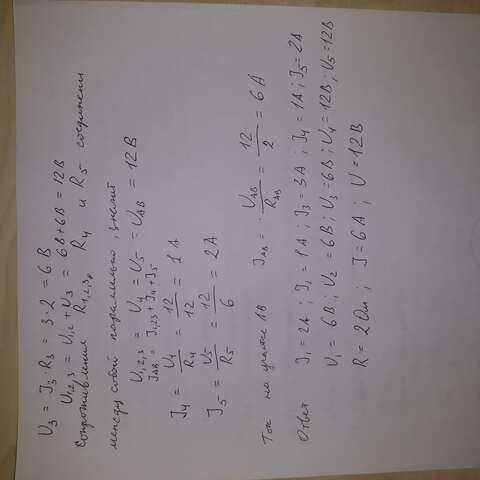 U₃ = J₃ · R₃ = 3 · 2 = 6 В
U₁,₂,₃ = U₁,₂ + U₃ = 6В + 6В = 12В
Сопротивления R₁,₂,₃, R₄ и R₅ соединены
между собой параллельно, значит
U₁,₂,₃ = U₄ = U₅ = U_AB = 12В
J_AB = J₁,₂,₃ + J₄ + J₅
J₄ = U₄/R₄ = 12/12 = 1 А
J₅ = U₅/R₅ = 12/6 = 2А
Ток на участке АВ J_AB = U_AB/R_AB = 12/2 = 6 А
Ответ J₁ = 2А ; J₂ = 1А ; J₃ = 3А ; J₄ = 1А ; J₅ = 2А
U₁ = 6В ; U₂ = 6В ; U₃ = 6В ; U₄ = 12В ; U₅ = 12В
R = 2 Ом ; J = 6А ; U = 12В